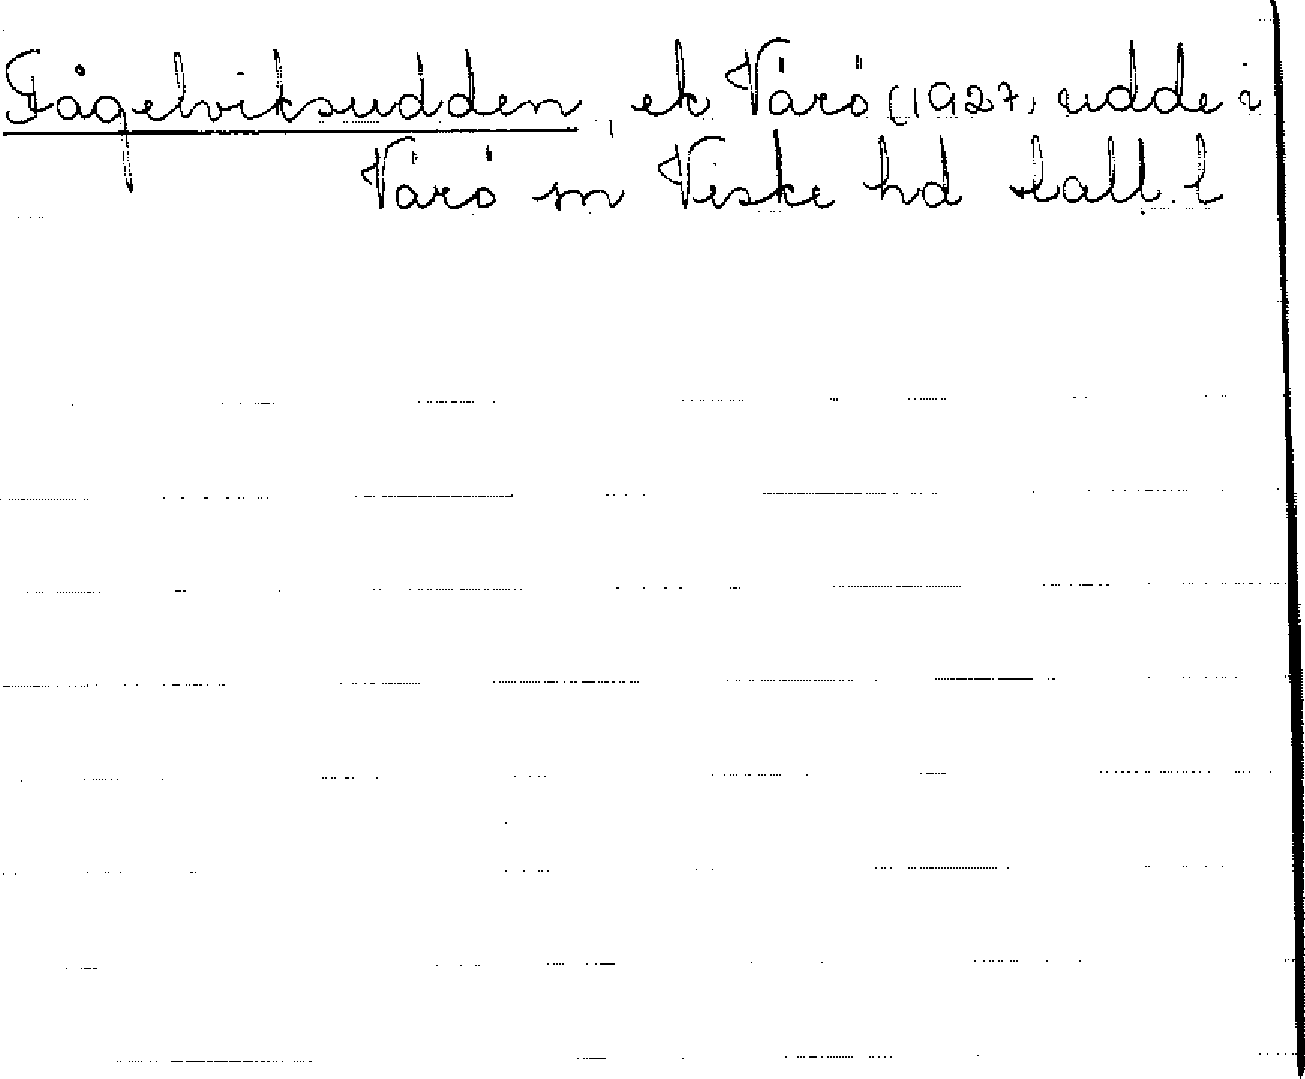 Fågelviksudden, ek Värö (1927, udde i
Värö sn Viske hd Hall. l